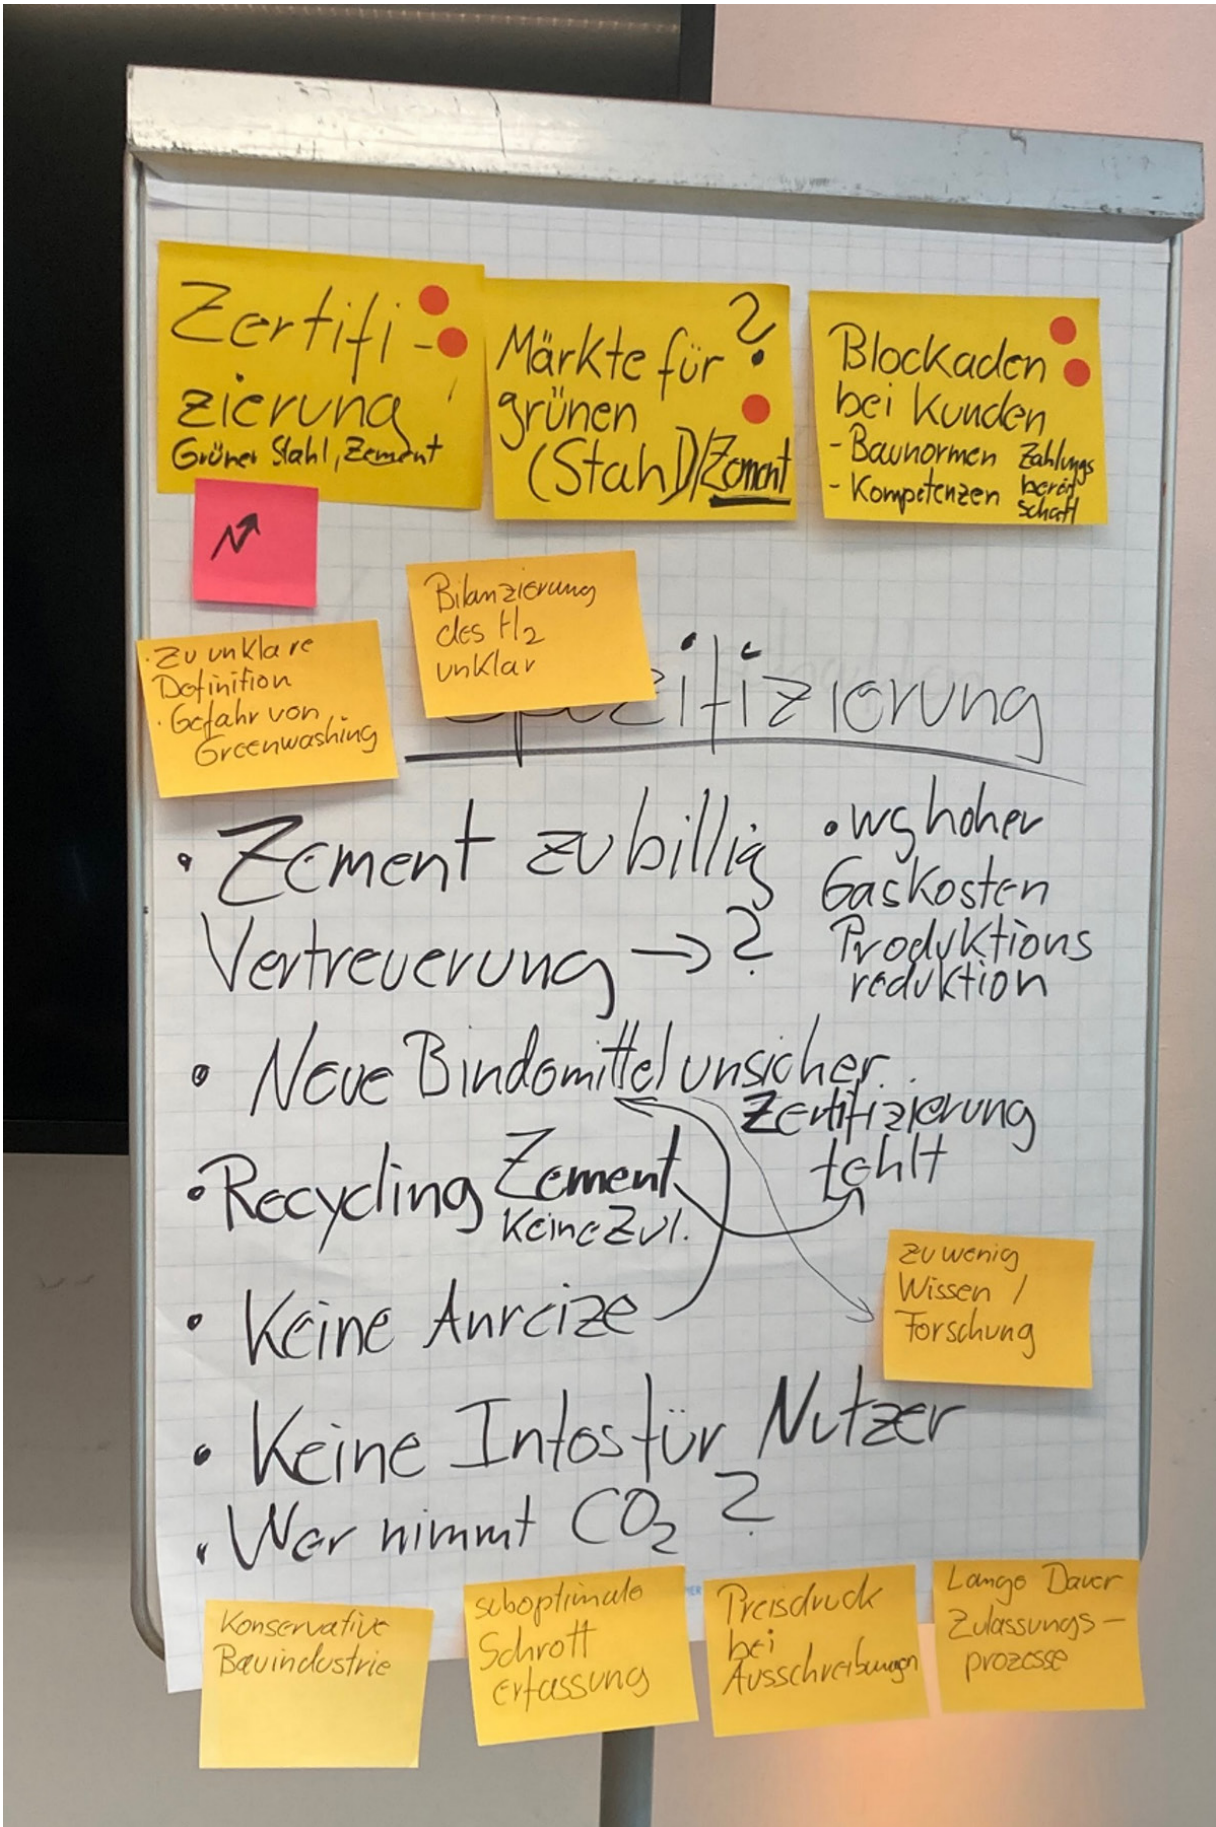 Zertifi-
zierung
Grüner Stahl, Zement
Märkte für ?
grünen
(Stahl)/Zement
Blockaden
bei Kunden
- Baunormen
- Kompetenzen
Zahlungs
bereit
schaft
Bilanzierung
des H2
unklar
· Zu unklare
Definition
· Gefahr von
Greenwashing
Spezifizierung
• Zement zu billig
Vertreuerung → ?
• wg hoher
Gaskosten
Produktions
reduktion
• Neue Bindemittel unsicher
Zertifizierung
fehlt
• Recycling Zement
Keine Zul.
• Keine Anreize
zu wenig
Wissen /
Forschung
• Keine Infos für Nutzer
• Wer nimmt CO2 ?
Konservative
Bauindustrie
suboptimale
Schrott
erfassung
Preisdruck
bei
Ausschreibungen
Lange Dauer
Zulassungs-
prozesse